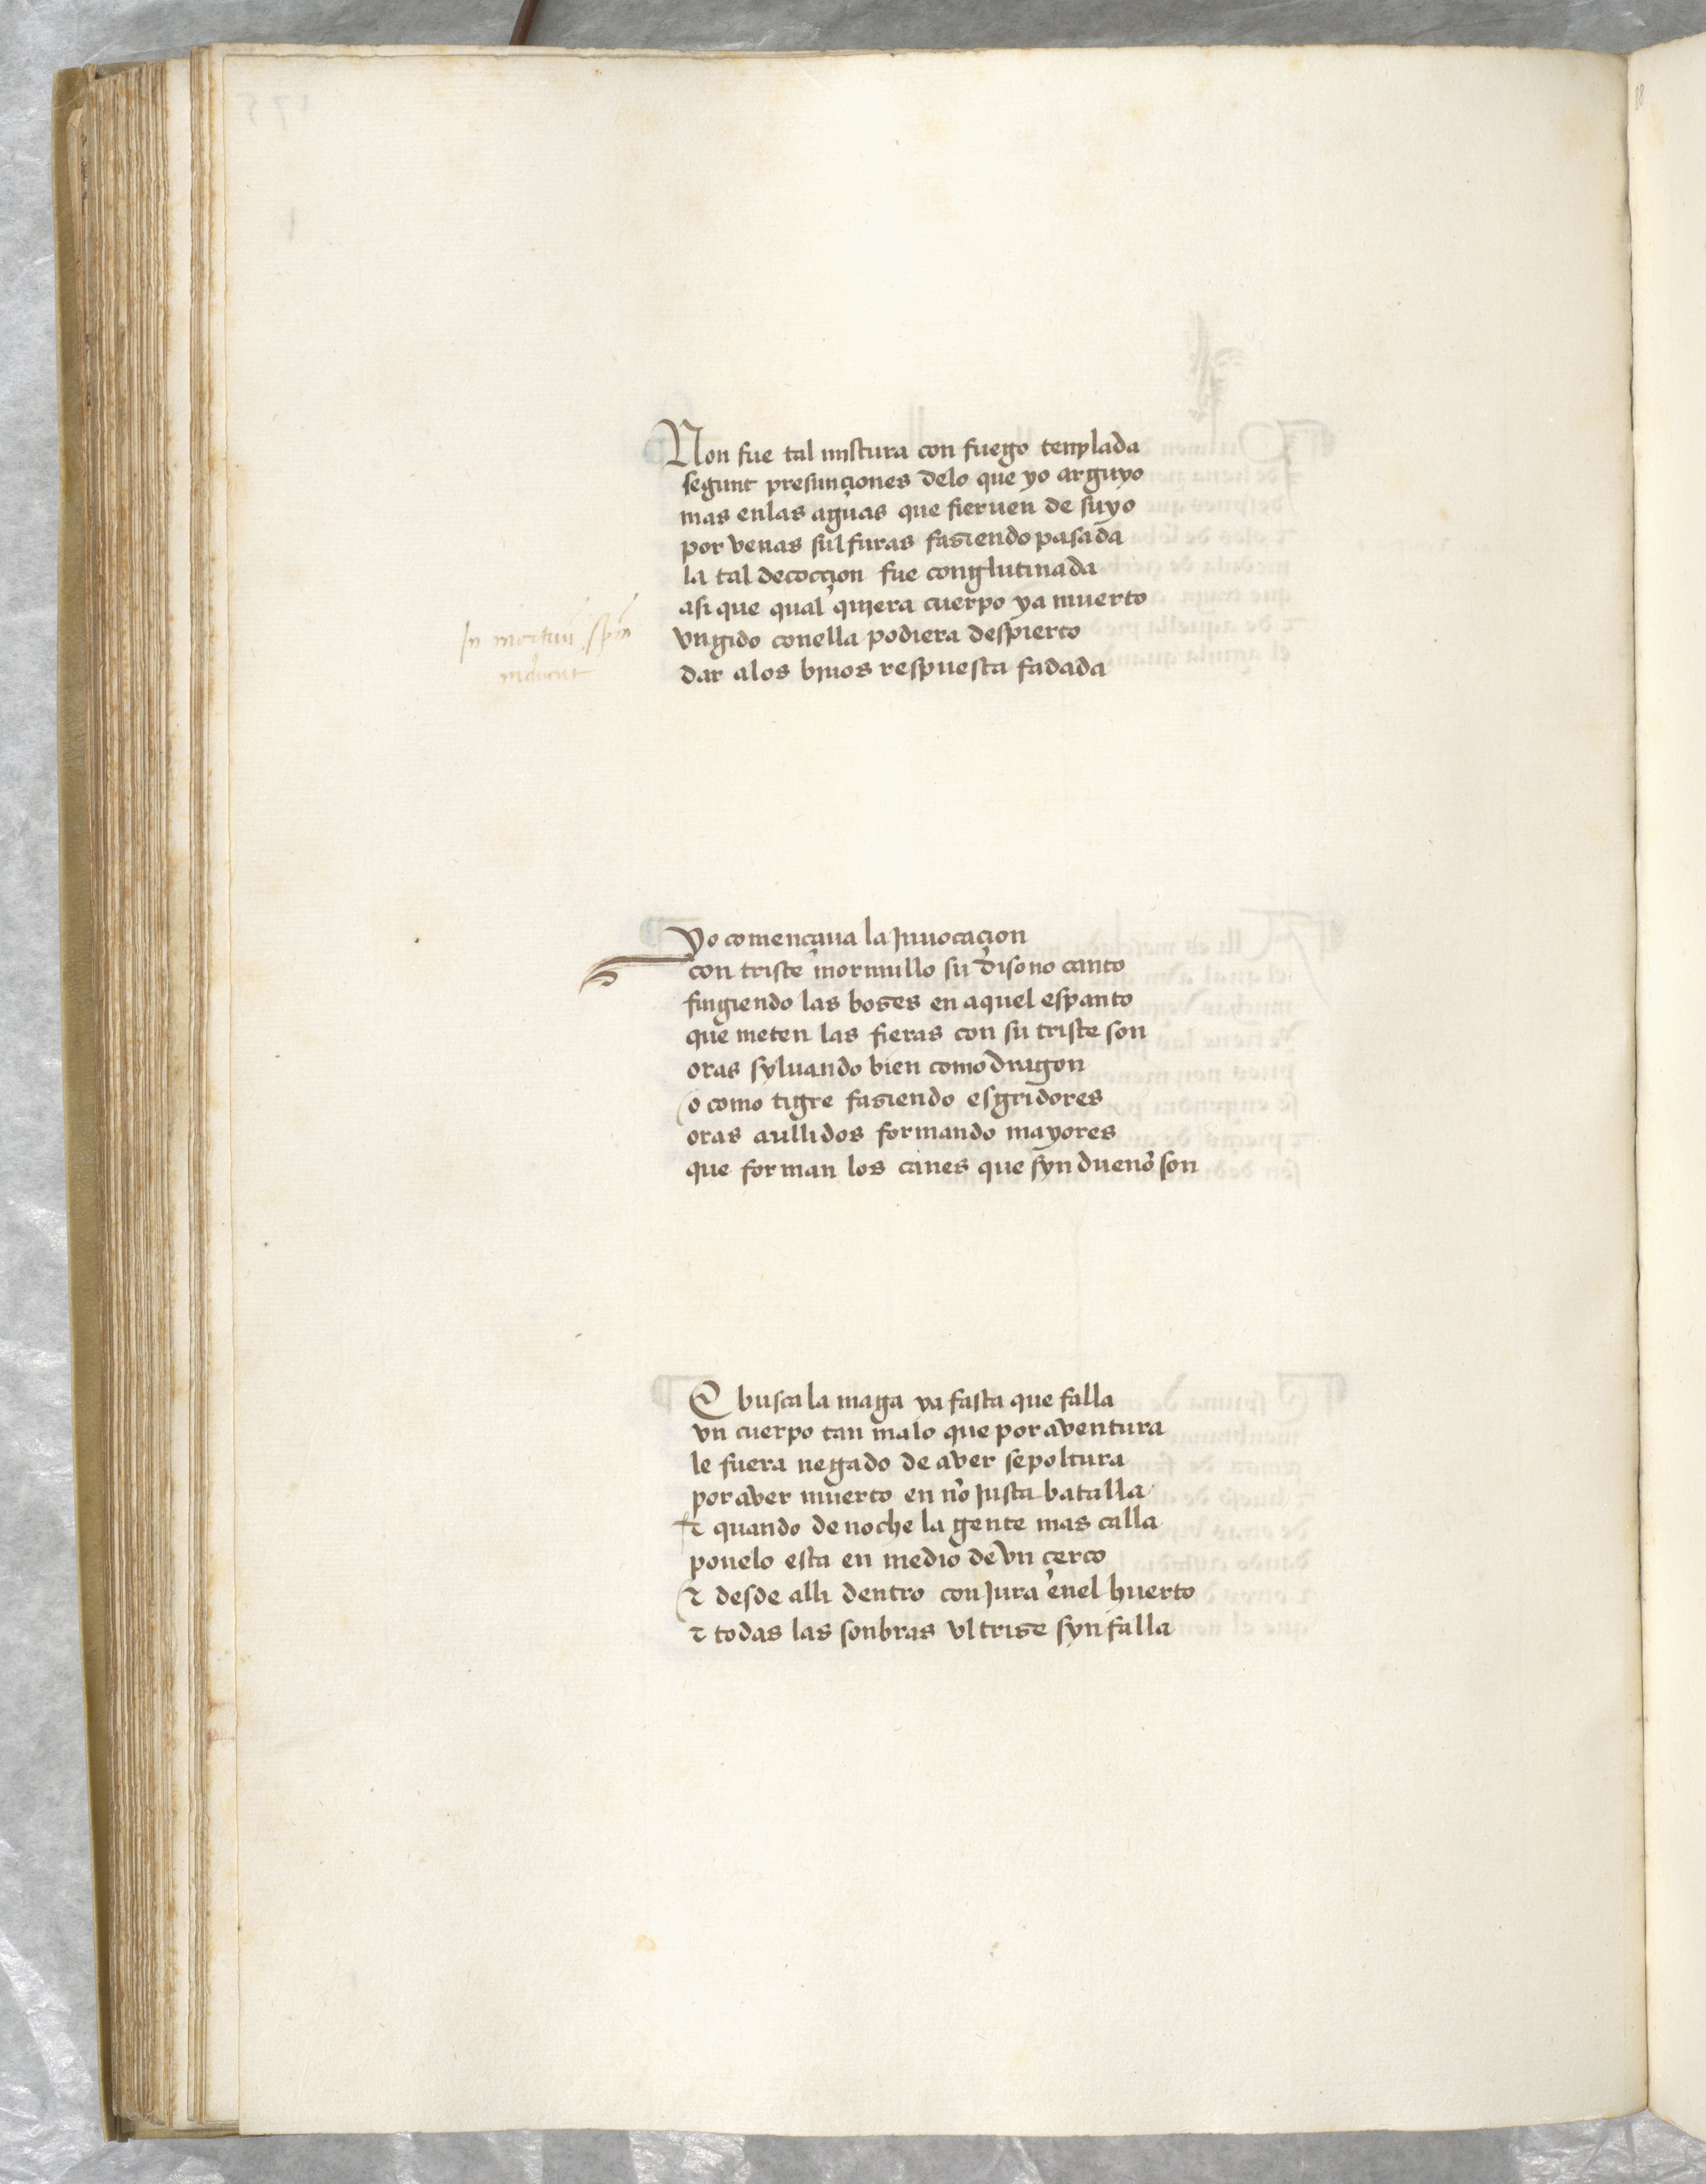 Non fue tal mistura con fuego templada
segunt presunçiones delo que yo arguyo
mas enlas aguas que fieruen de suyo
por venas sulfuras fasiendo pasada
la tal decocçion fue conglutinada
asi que qual quiera cuerpo ya muerto
vngido conella podiera despierto
dar alos biuos respuesta fadada
In mortuũ
Yo començaua la Jnuocaçion
con triste mormullo su disono canto
fingiendo las boses en aquel espanto
que meten las fieras con su triste son
oras syluando bien como dragon
o como tigre fasiendo esgridores
oras aullidos formando mayores
que forman los canes que syn dueño son
E busca la maga ya fasta que falla
vn cuerpo tan malo que por aventura
le fuera negado de aver sepoltura
por aver muerto en nõ Justa batalla
⁊ quando de noche la gente mas calla
ponelo esta en medio de vn çerco
⁊ desde alli dentro conJura enel huerto
⁊ todas las sonbras vltrise syn falla